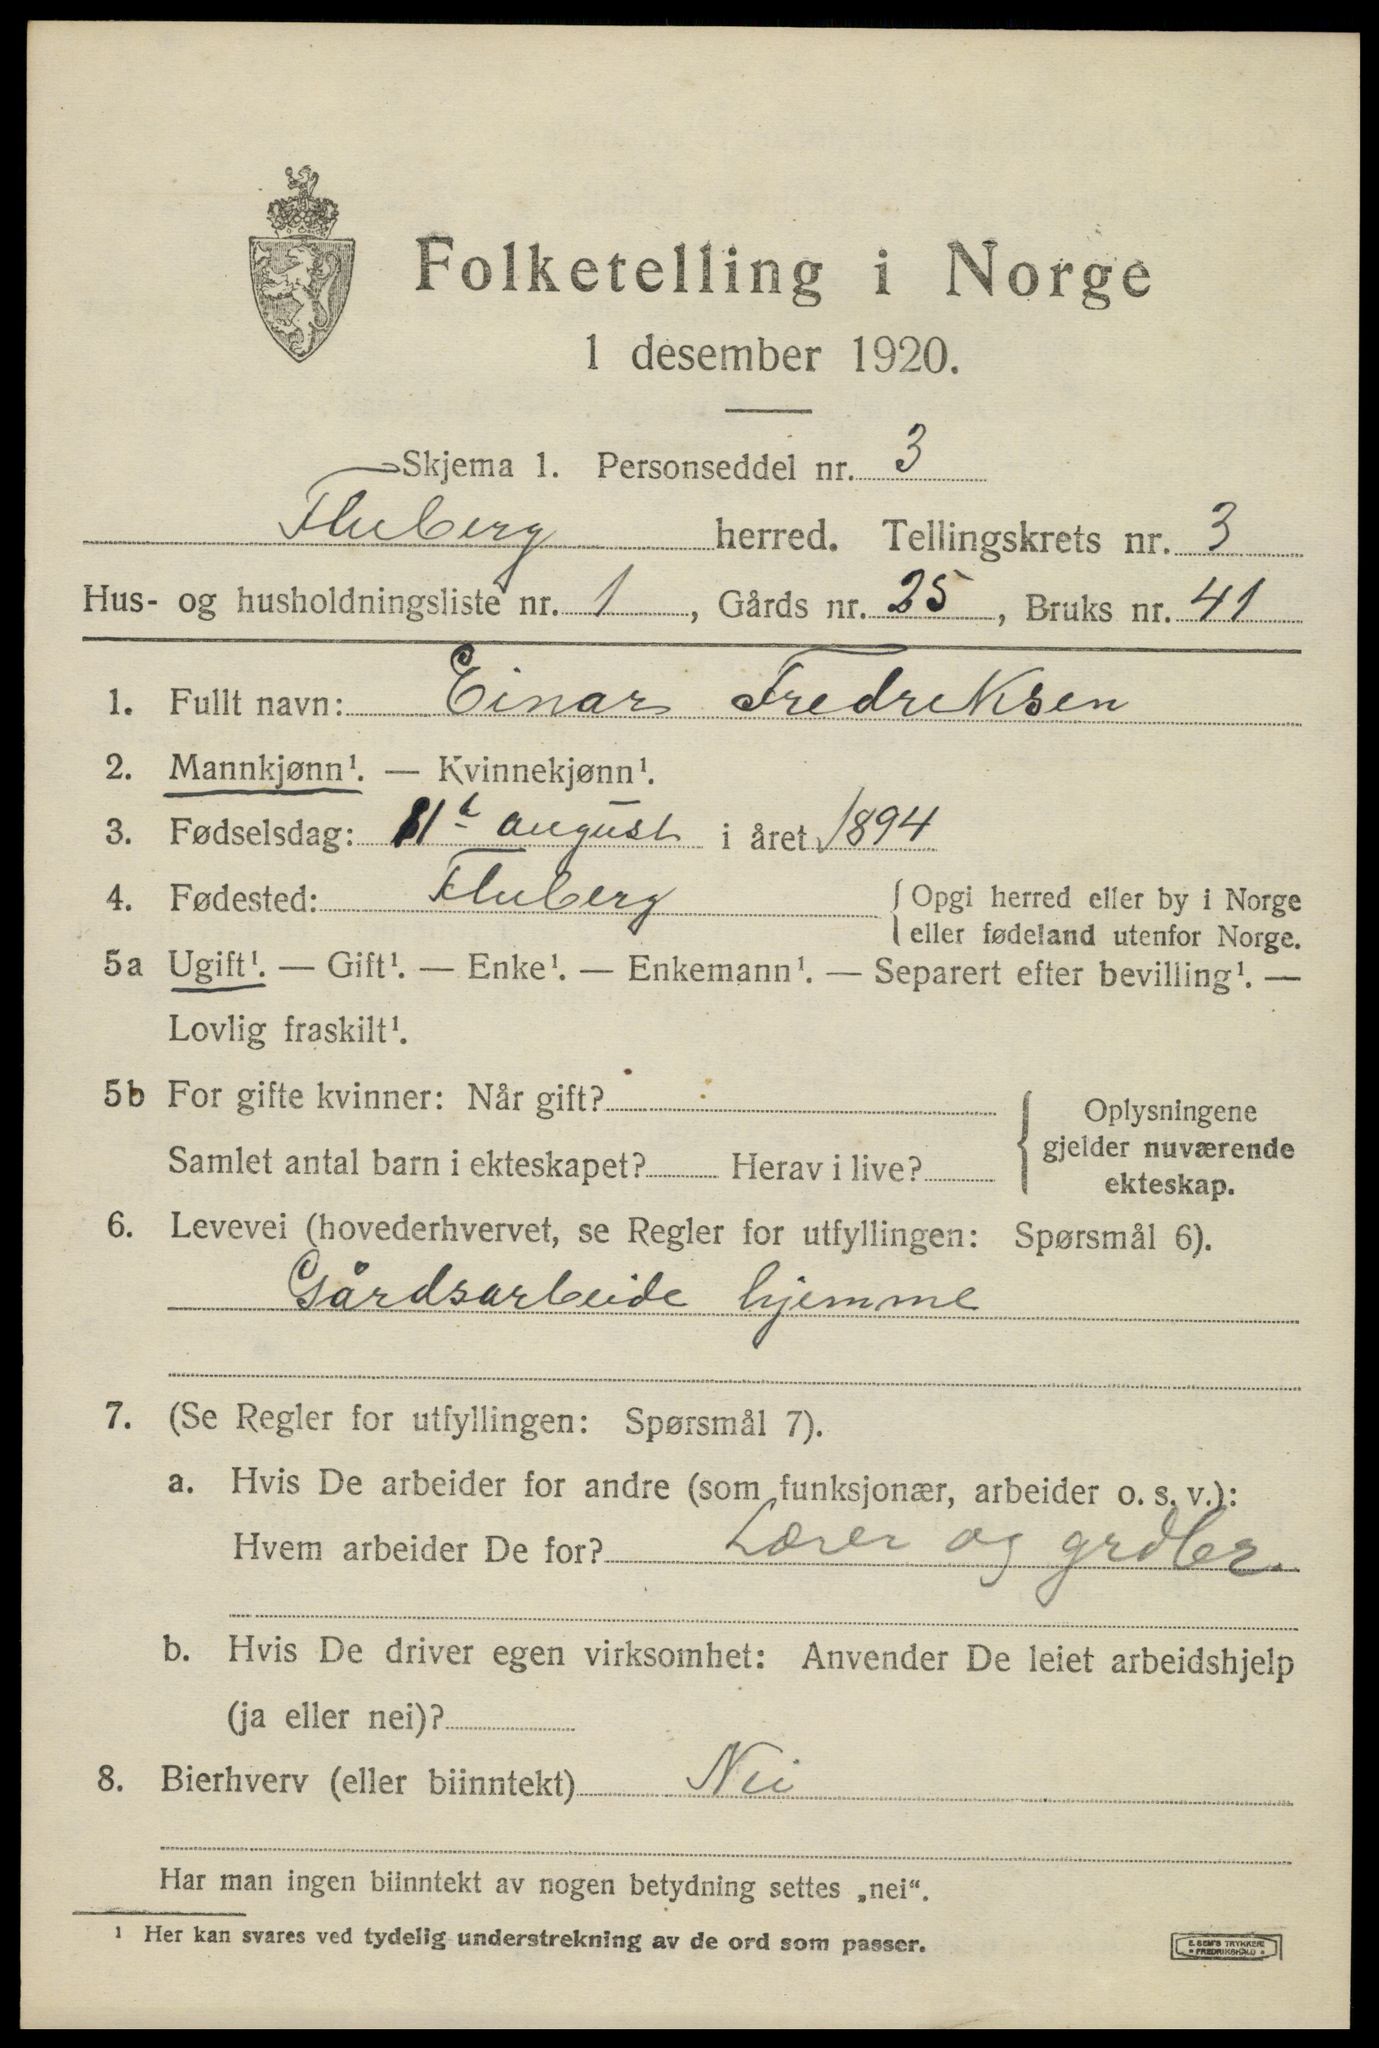 Folketelling i Norge
1 desember 1920.
Skjema 1. Personseddel nr. 3
Fluberg herred. Tellingskrets nr. 3
Hus- og husholdningsliste nr. 1, Gårds nr. 25, Bruks nr. 41
1. Fullt navn: Einar Fredriksen
2. Mannkjønn¹. — Kvinnekjønn¹.
3. Fødselsdag: 11t august i året 1894
4. Fødested: Fluberg { Opgi herred eller by i Norge
eller fødeland utenfor Norge.
5a Ugift¹. — Gift¹. — Enke¹. — Enkemann¹. — Separert efter bevilling¹. —
Lovlig fraskilt¹.
5b For gifte kvinner: Når gift?
Samlet antal barn i ekteskapet? Herav i live?
{ Oplysningene
gjelder nuværende
ekteskap.
6. Levevei (hovederhvervet, se Regler for utfyllingen: Spørsmål 6).
Gårdsarbeide hjemme
7. (Se Regler for utfyllingen: Spørsmål 7).
a. Hvis De arbeider for andre (som funksjonær, arbeider o. s. v.):
Hvem arbeider De for? Lærer og grdbr.
b. Hvis De driver egen virksomhet: Anvender De leiet arbeidshjelp
(ja eller nei)?
8. Bierhverv (eller biinntekt) Nei
Har man ingen biinntekt av nogen betydning settes „nei“.
¹ Her kan svares ved tydelig understrekning av de ord som passer.
E. SEM'S TRYKKERI
• FREDRIKSHALD •